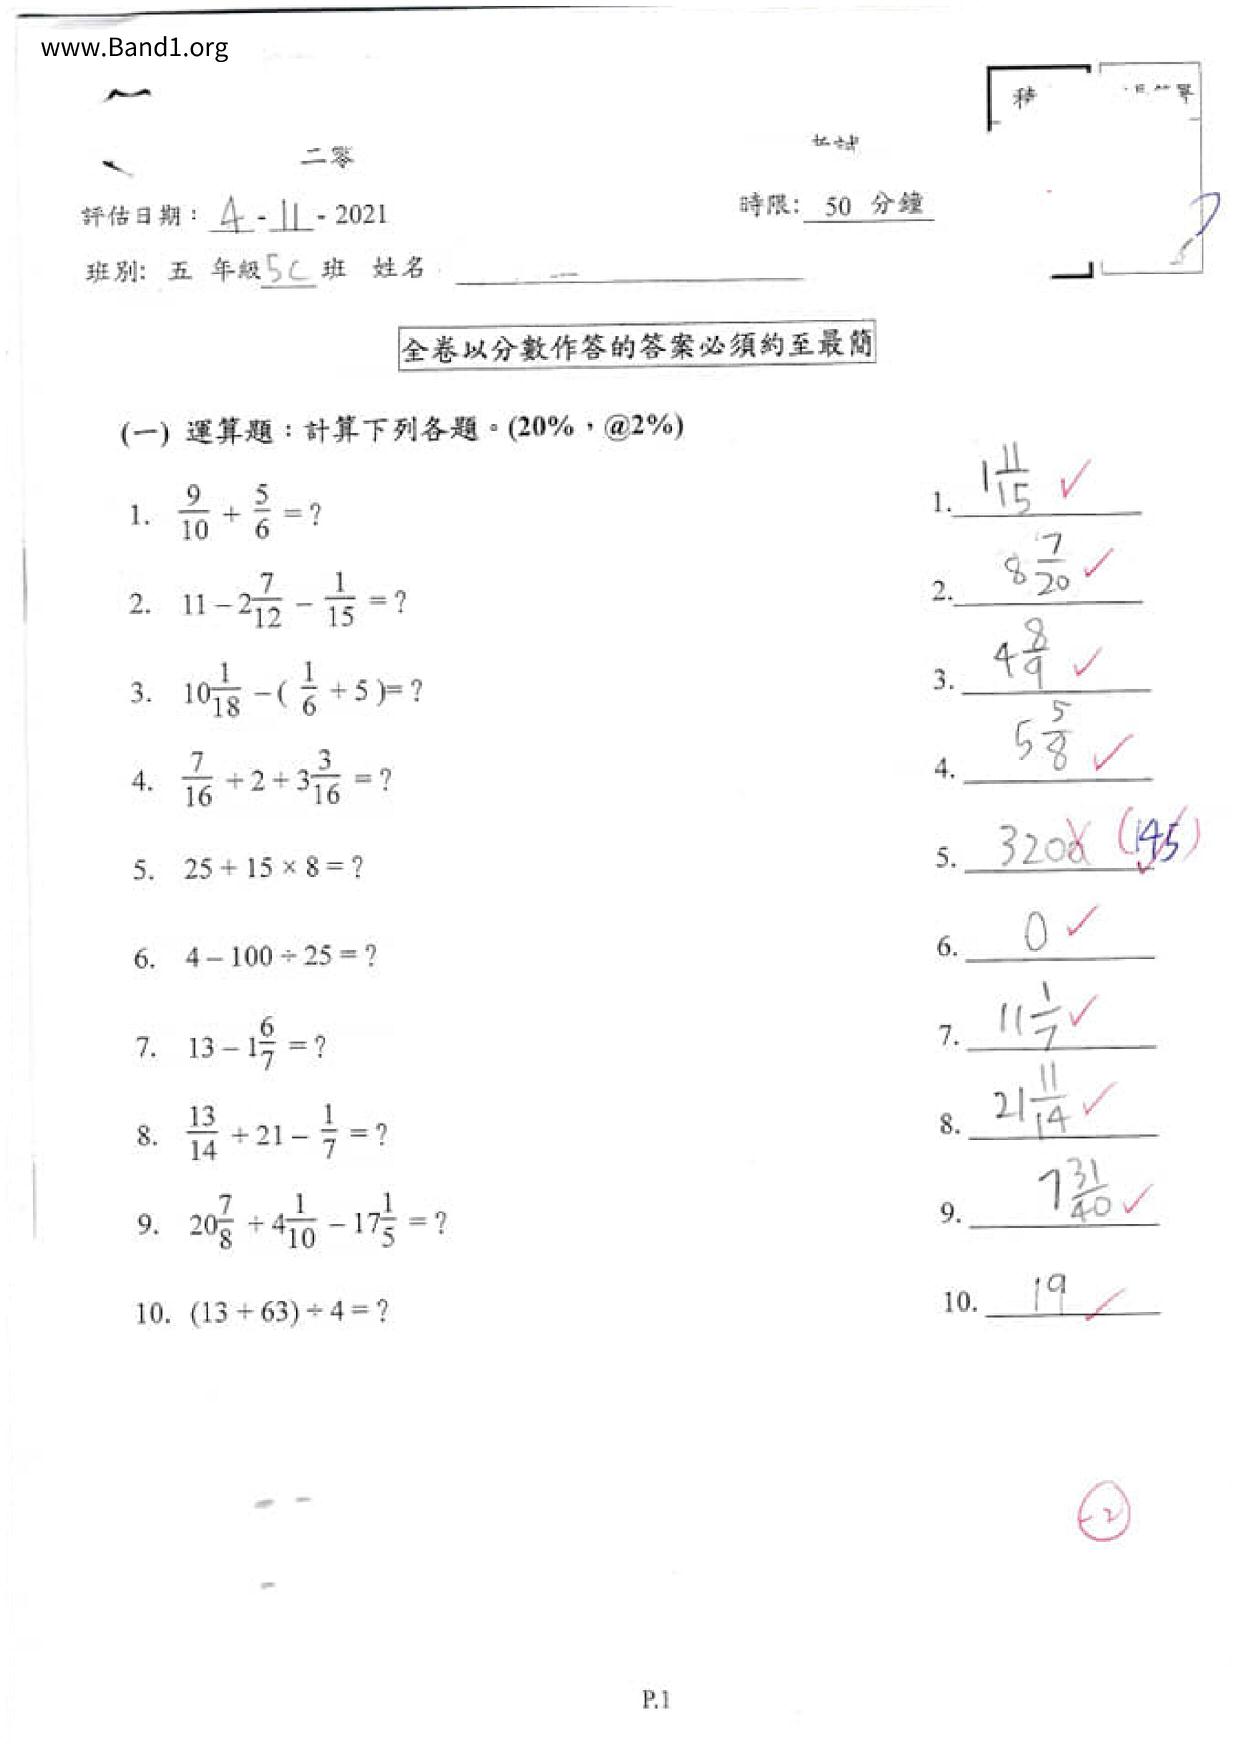 www.Band1.org
二零
評估日期: 4 - 11 - 2021
時限: 50 分鐘
班別: 五 年級 5C 班 姓名
全卷以分數作答的答案必須約至最簡
(一) 運算題:計算下列各題。(20%,@2%)
1. 9/10 + 5/6 = ? 1. 1 11/15 ✓
2. 11 – 2 7/12 – 1/15 = ? 2. 8 7/20 ✓
3. 10 1/18 – ( 1/6 + 5 )= ? 3. 4 8/9 ✓
4. 7/16 + 2 + 3 3/16 = ? 4. 5 5/8 ✓
5. 25 + 15 × 8 = ? 5. 320 (145) ✓
6. 4 – 100 ÷ 25 = ? 6. 0 ✓
7. 13 – 1 6/7 = ? 7. 11 1/7 ✓
8. 13/14 + 21 – 1/7 = ? 8. 21 11/14 ✓
9. 20 7/8 + 4 1/10 – 17 1/5 = ? 9. 7 31/40 ✓
10. (13 + 63) ÷ 4 = ? 10. 19 ✓
-2
P.1